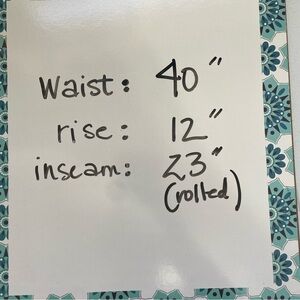 Waist: 40"
rise: 12"
inseam: 23"
(rolled)